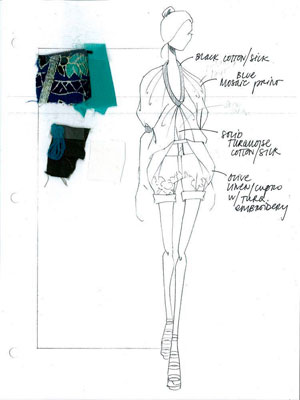 BLACK COTTON/SILK
BLUE
MOSAIC PRINT
SOLID
TURQUOISE
COTTON/SILK
OLIVE
LINEN/CUPRO
W/TURQ.
EMBROIDERY